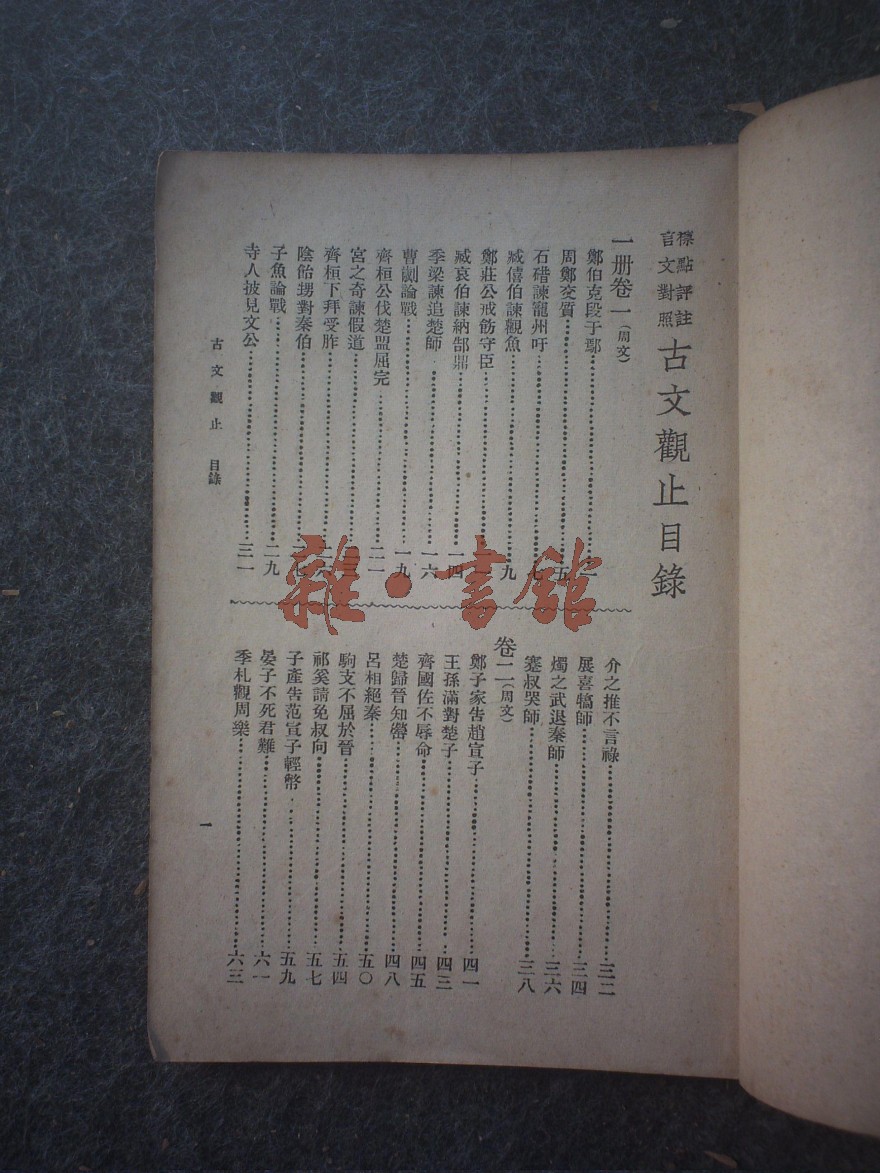 標點評註
言文對照
古文觀止目錄
一册卷一(周文)
鄭伯克段于鄢
周鄭交質……五
石碏諫寵州吁……七
臧僖伯諫觀魚……九
鄭莊公戒飭守臣
臧哀伯諫納郜鼎……一四
季梁諫追楚師……一六
曹劌論戰……一九
齊桓公伐楚盟屈完……二一
宮之奇諫假道
齊桓下拜受胙……二六
陰飴甥對秦伯
子魚論戰……二九
寺人披見文公……三一
介之推不言祿……三二
展喜犒師……三四
燭之武退秦師……三六
蹇叔哭師……三八
卷二(周文)
鄭子家告趙宣子……四一
王孫滿對楚子……四三
齊國佐不辱命……四五
楚歸晉知罃……四八
呂相絕秦……五〇
駒支不屈於晉……五四
祁奚請免叔向……五七
子產告范宣子輕幣……五九
晏子不死君難……六一
季札觀周樂……六三
古文觀止 目錄
一
雜·書館